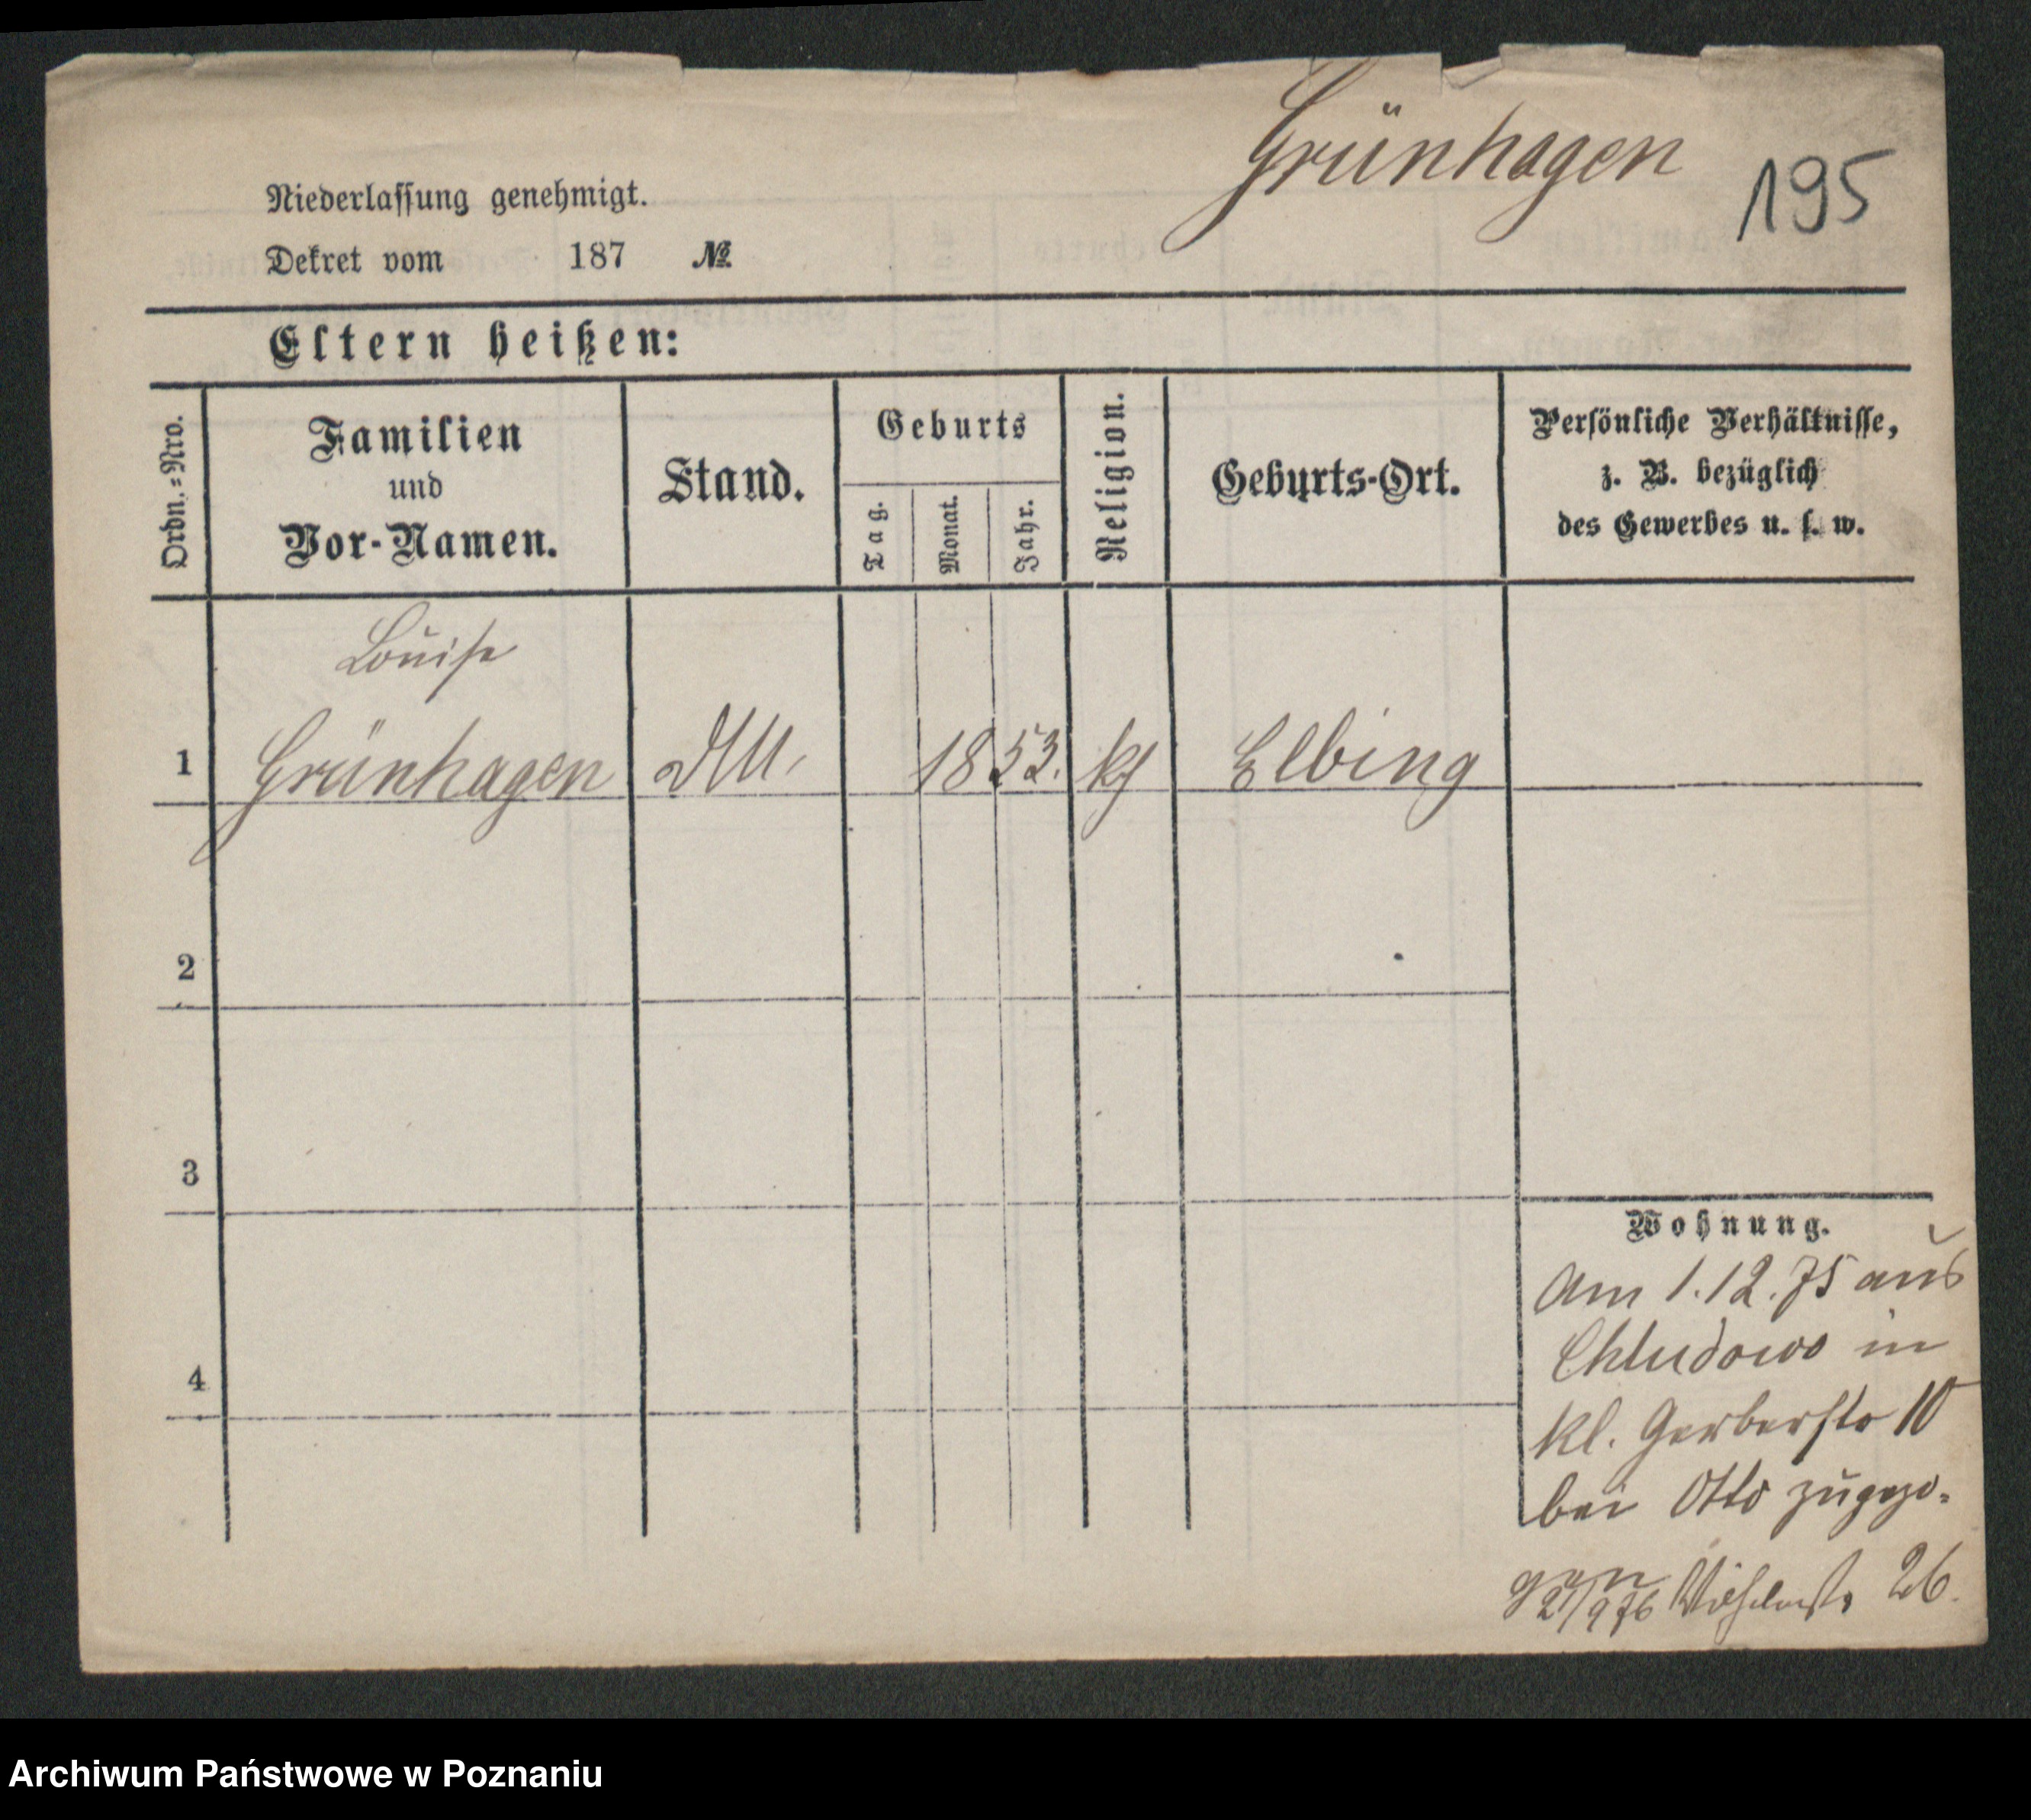 Grünhagen
195
Niederlassung genehmigt.
Dekret vom 187 №
Eltern heißen:
Ordn.-Nro.
Familien
und
Vor-Namen.
Stand.
Geburts
Tag.
Monat.
Jahr.
Religion.
Geburts-Ort.
Persönliche Verhältnisse,
z. B. bezüglich
des Gewerbes u. s. w.
Louise
1 Grünhagen 1853. Elbing
2
3
4
Wohnung.
Am 1.12.75 aus
Chludowo in
kl. Gerberstr 10
bei Otto zugezo-
gen
21/9 76 Wilhelmstr 26.
Archiwum Państwowe w Poznaniu